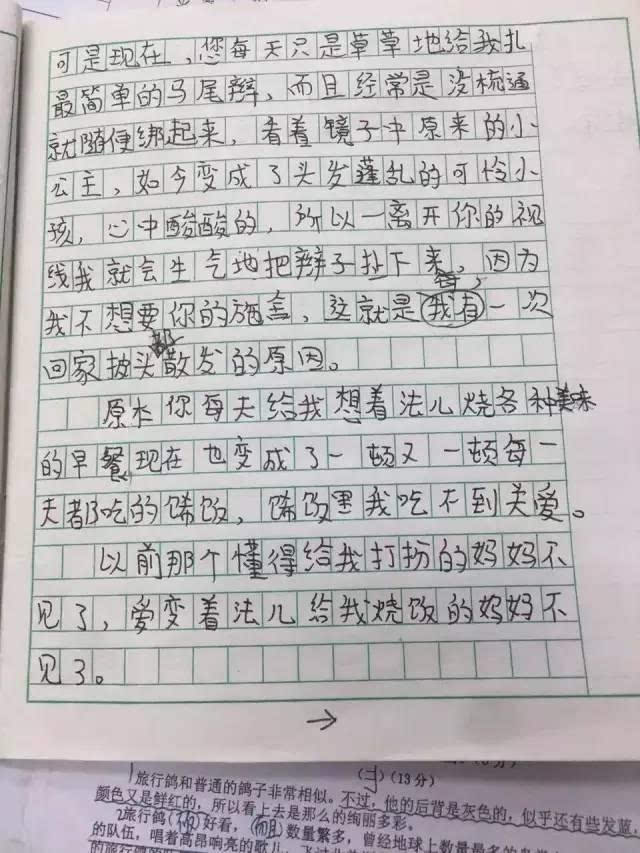 可是现在，您每天只是草草地给我扎
最简单的马尾辫，而且经常是没梳通
就随便绑起来，看着镜子中原来的小
公主，如今变成了头发蓬乱的可怜小
孩，心中酸酸的，所以一离开你的视
线我就会生气地把辫子扯下来，因为
我不想要你的施舍，这就是我有每一次
回家披头散发的原因。
原本你每天给我想着法儿烧各种美味
的早餐现在也变成了一顿又一顿每一
天都吃的馊饭，馊饭里我吃不到关爱。
以前那个懂得给我打扮的妈妈不
见了，爱变着法儿给我烧饭的妈妈不
见了。
→
旅行鸽和普通的鸽子非常相似。不过，他的后背是灰色的，似乎还有些发蓝，
(13分)
颜色又是鲜红的，所以看上去是那么的绚丽多彩。
2旅行鸽(不但)好看，(而且)数量繁多，曾经地球上数量最多的鸟类
的队伍，唱着高昂响亮的歌儿，飞过